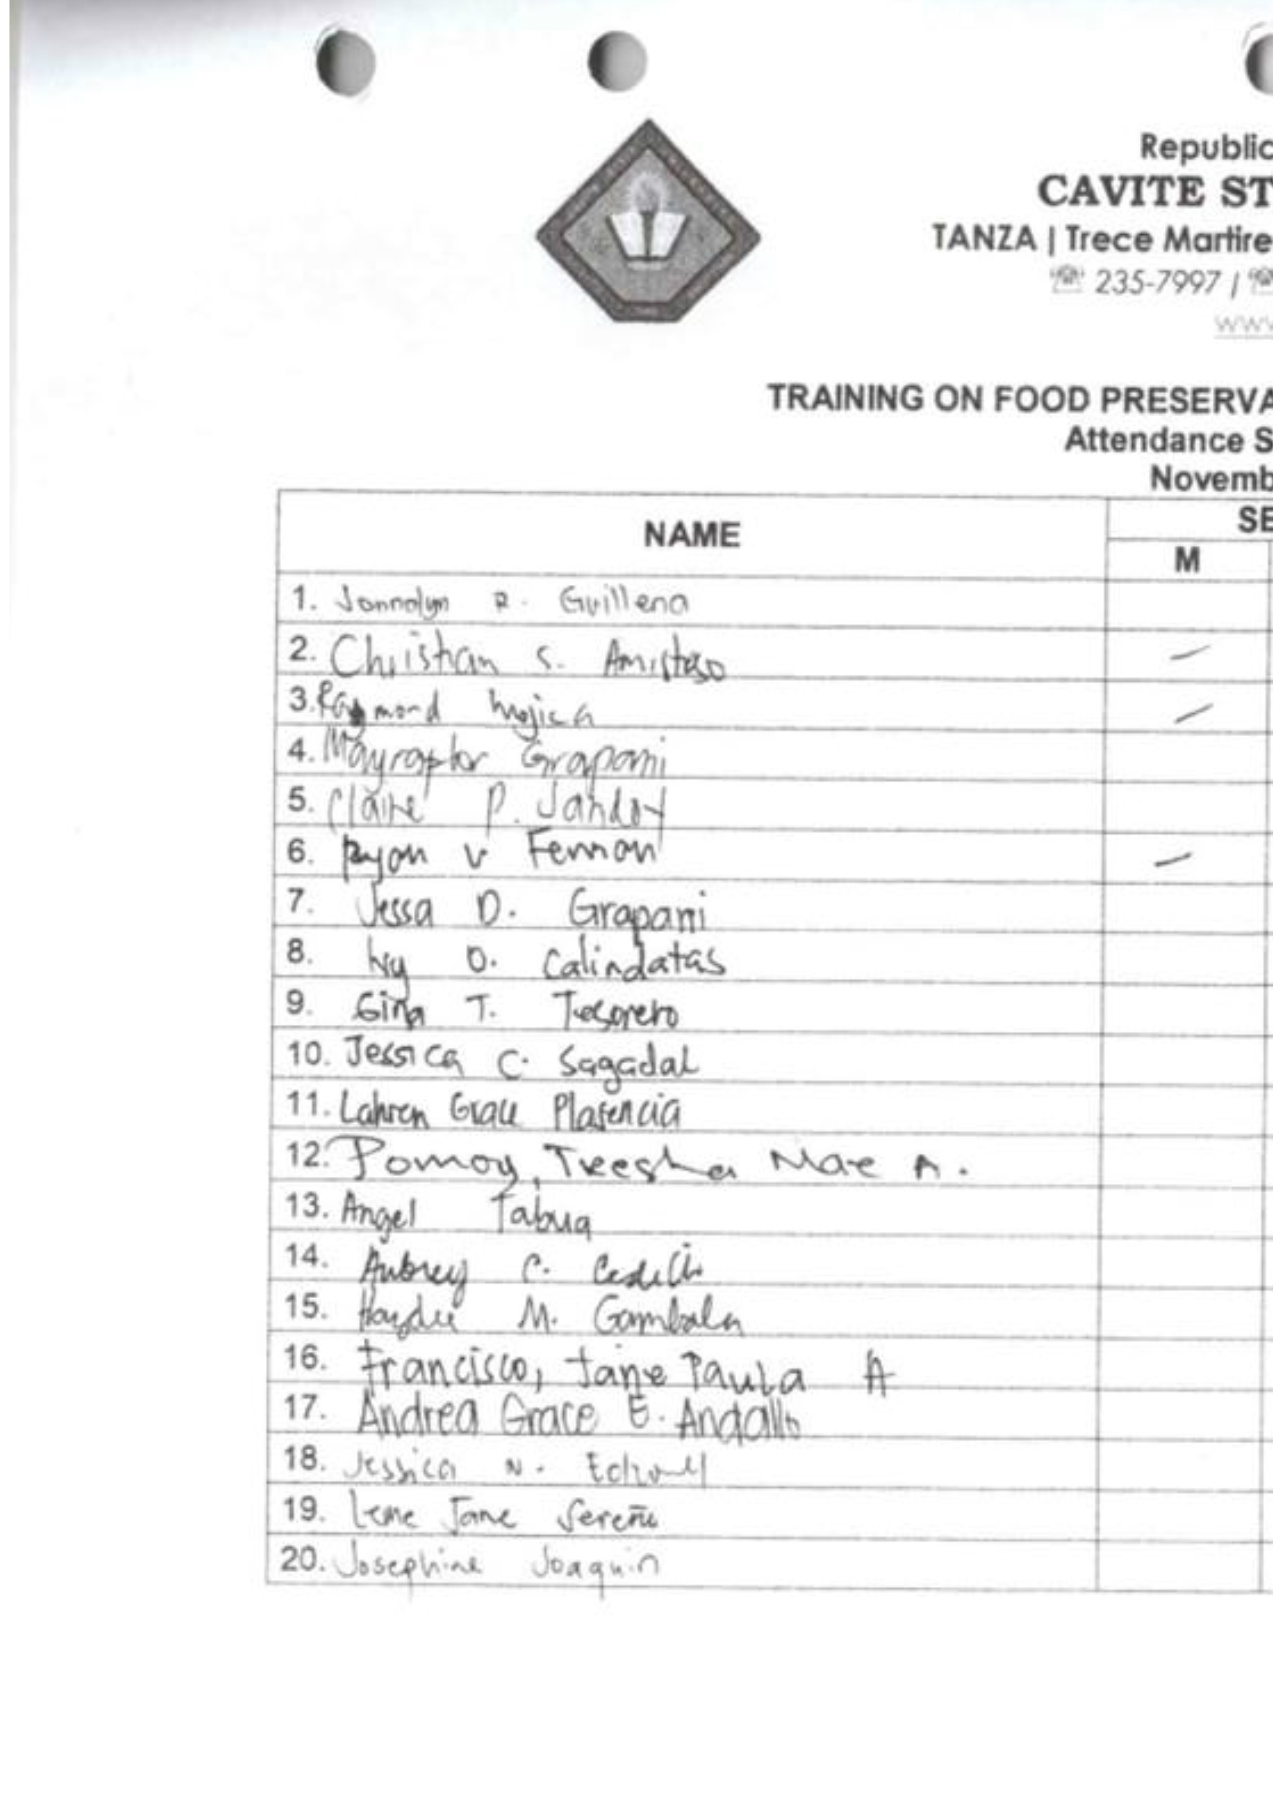 Republic
CAVITE ST
TANZA | Trece Martire
235-7997 /
www
TRAINING ON FOOD PRESERVA
Attendance S
Novemb
NAME
SE
M
1. Jonnalyn R. Guillena
2. Christian S. Amistoso
3. Raymond Mojica
4. Mayraptor Grapani
5. Claire P. Jandoy
6. Ryan V
7. Jessa D. Grapani
8. Ivy O. Calindatas
9. Gina T. Tesorero
10. Jessica C. Sagadal
11. Lahren Grace Plasencia
12. Pomoy, Treesha Mae A.
13. Angel Tabua
14. Aubrey C.
15. Haydee M. Gambala
16. Francisco, Jane Paula A
17. Andrea Grace E. Andallo
18. Jessica N.
19. Jane Sereño
20. Josephine Joaquin